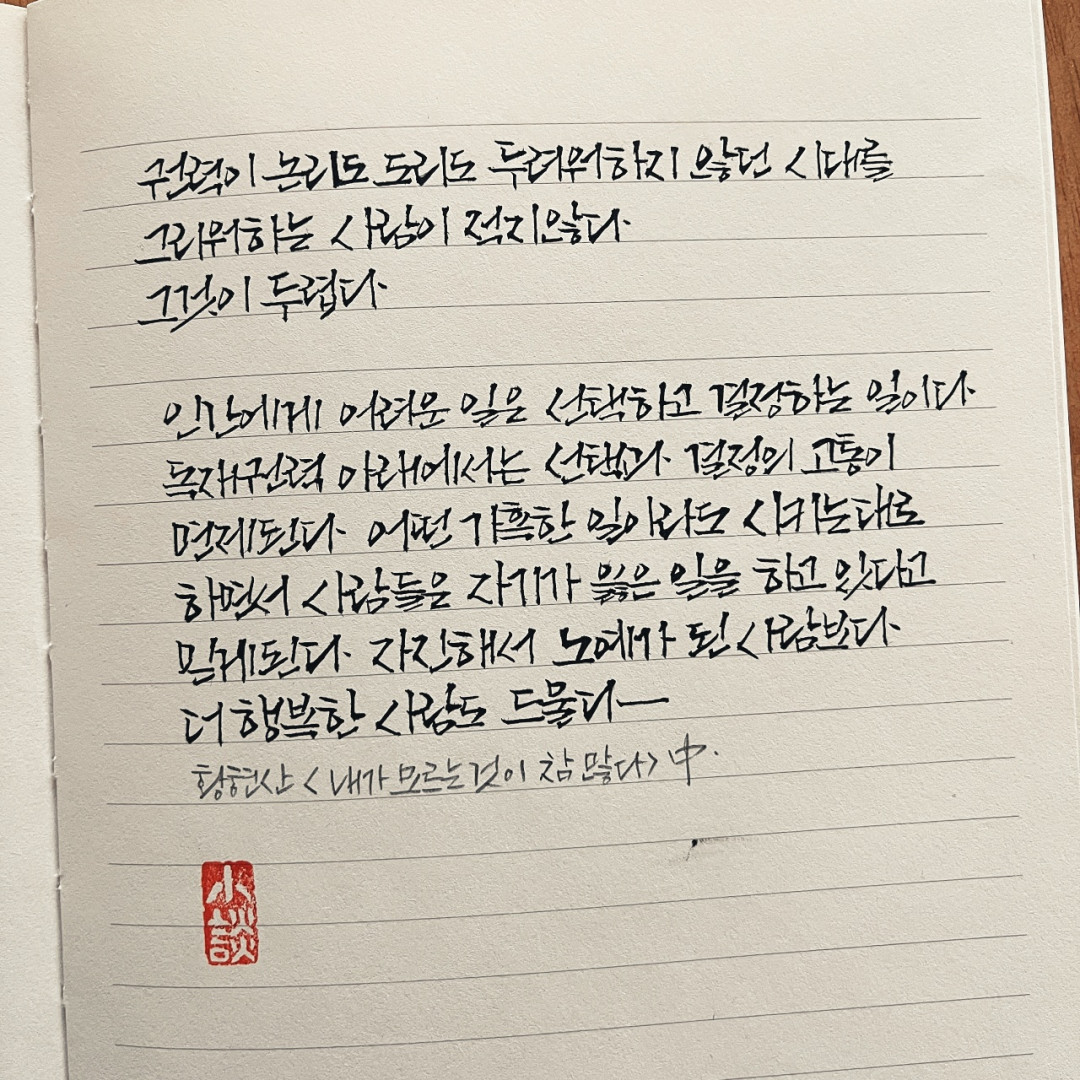 권력이 논리도 도리도 두려워하지 않던 시대를
그리워하는 사람이 적지않다.
그것이 두렵다.
인간에게 어려운 일은 선택하고 결정하는 일이다.
독재권력 아래에서는 선택과 결정의 고통이
면제된다. 어떤 가혹한 일이라도 시키는대로
하면서 사람들은 자기가 옳은 일을 하고 있다고
믿게된다. 자진해서 노예가 된 사람보다
더 행복한 사람도 드물다—
황현산 <내가 모르는 것이 참 많다> 中.
小談